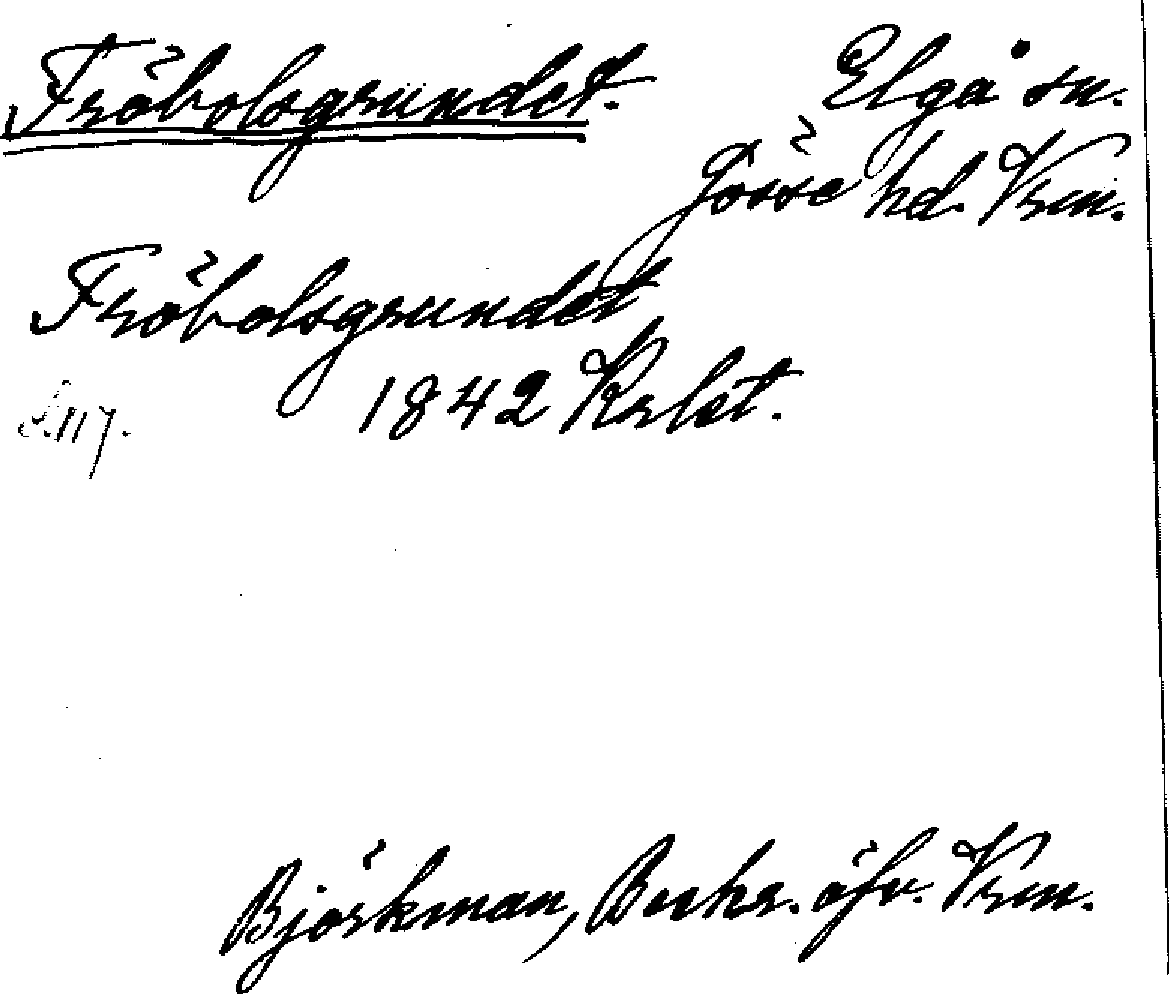 Fröbolsgrundet.
Elgå sn.
Jösse hd. Vrm.
Fröbolsgrundet
1842 Krlst.
S. 117.
Björkman, Beskr. öfv. Vrm.